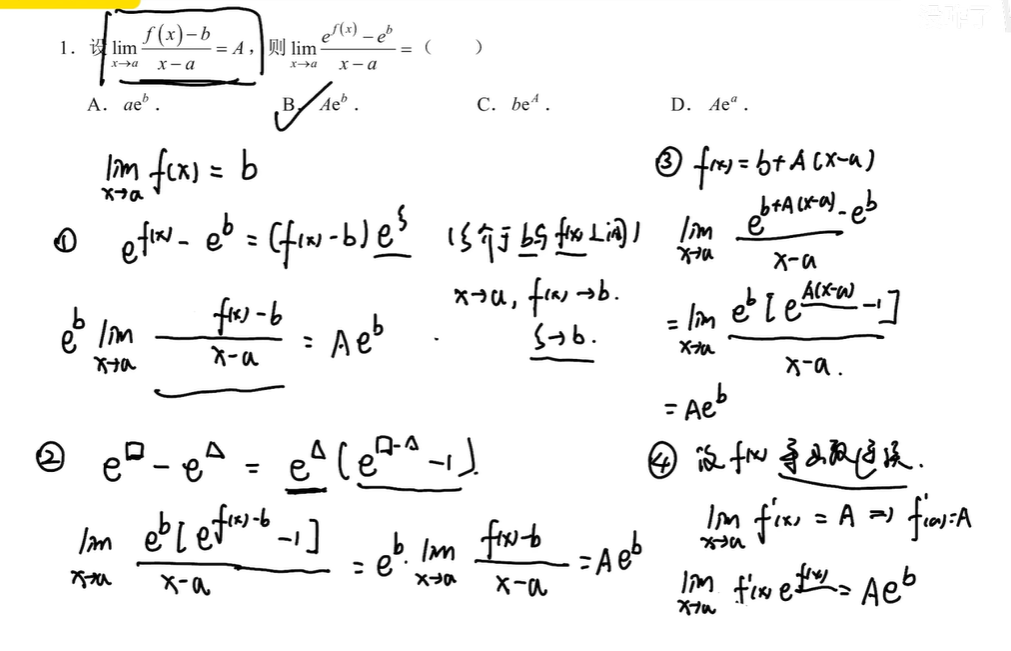 1. 设 lim_{x→a} (f(x)−b)/(x−a) = A, 则 lim_{x→a} (e^{f(x)}−e^b)/(x−a) = ( )
A. ae^b. B. Ae^b. C. be^A. D. Ae^a.
lim_{x→a} f(x) = b
① e^{f(x)} − e^b = (f(x)−b)e^ξ (ξ介于b与f(x)之间)
x→a, f(x)→b.
ξ→b.
e^b lim_{x→a} (f(x)−b)/(x−a) = Ae^b
② e^□ − e^△ = e^△(e^{□−△} −1).
lim_{x→a} e^b[e^{f(x)−b} −1]/(x−a) = e^b · lim_{x→a} (f(x)−b)/(x−a) = Ae^b
③ f(x) = b+A(x−a)
lim_{x→a} (e^{b+A(x−a)} − e^b)/(x−a)
= lim_{x→a} e^b[e^{A(x−a)} −1]/(x−a).
= Ae^b
④ 设f(x)导函数连续.
lim_{x→a} f'(x) = A ⇒ f'(a)=A
lim_{x→a} f'(x)e^{f(x)} = Ae^b